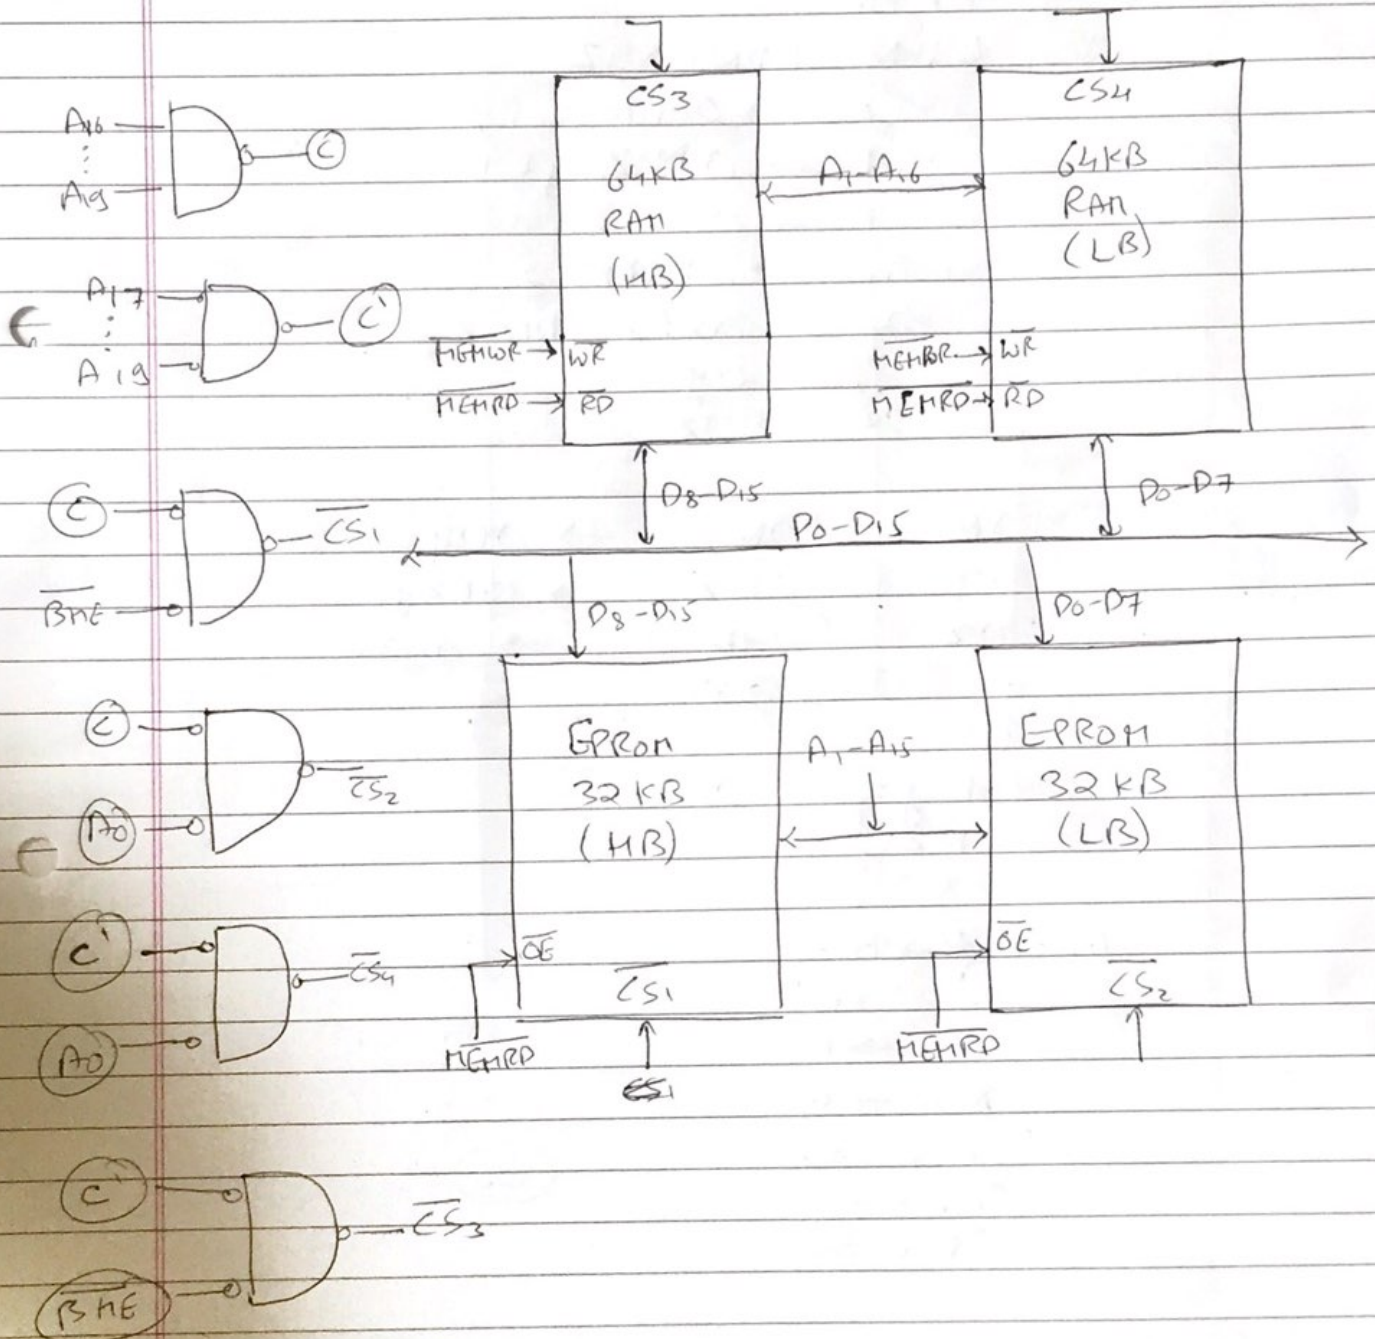 A16
A19
C
A17
A19
C'
C
B̅H̅E̅
C̅S̅1
C
A0
C̅S̅2
C'
A0
C̅S̅4
C'
B̅H̅E̅
C̅S̅3
CS3
64KB
RAM
(HB)
M̅E̅M̅W̅R̅ W̅R̅
M̅E̅M̅R̅D̅ R̅D̅
A1-A16
CS4
64KB
RAM
(LB)
W̅R̅
M̅E̅M̅R̅D̅ R̅D̅
D8-D15
D0-D7
D0-D15
D8-D15
D0-D7
EPROM
32KB
(HB)
O̅E̅
C̅S̅1
M̅E̅M̅R̅D̅
A1-A15
EPROM
32KB
(LB)
O̅E̅
C̅S̅2
M̅E̅M̅R̅D̅